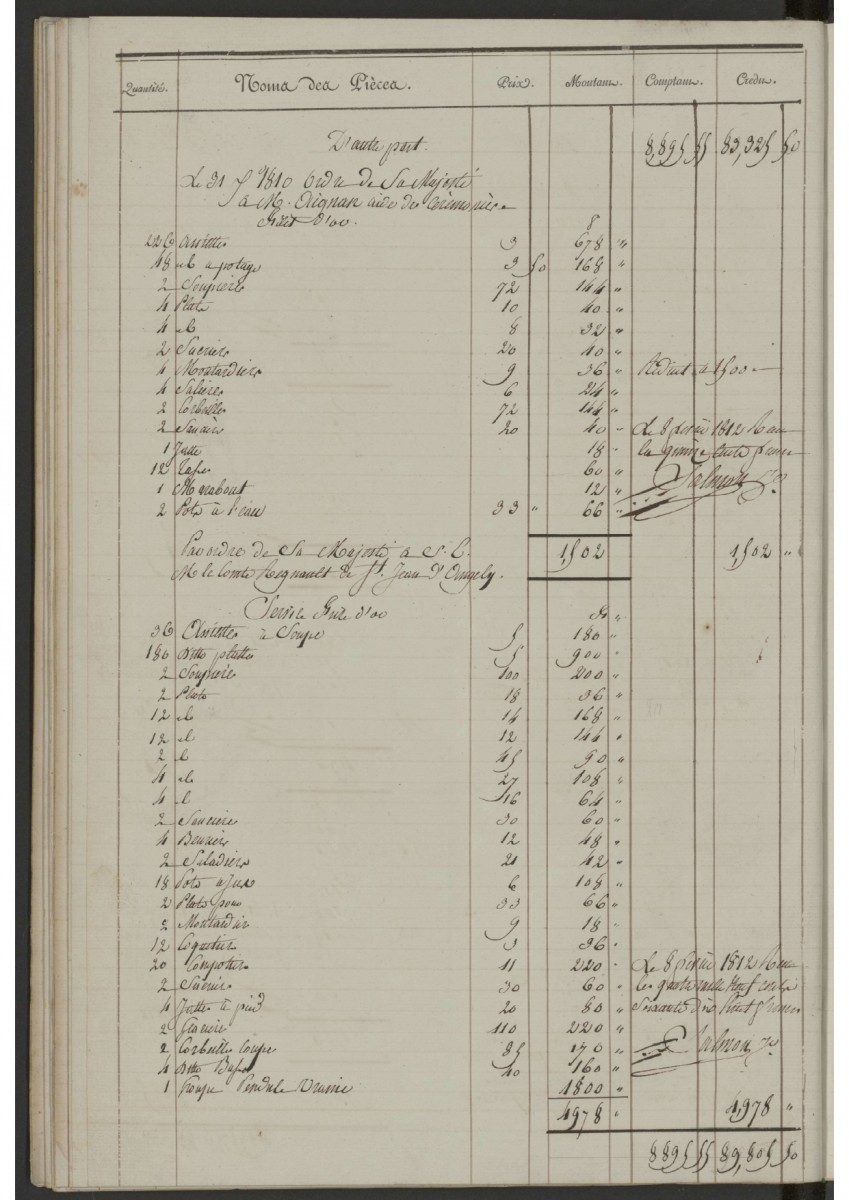 Quantité. Noms des Pièces. Prix. Montant. Comptant. Crédit.
D'autre part. 8,895 55 83,325 50
Le 31 1810 Ordre de Sa Majesté
à M. Aignan aide des Cérémonies
Filet d'or.
226 Assiettes 3 678 "
48 id. à potage 3 50 168 "
2 Soupières 72 144 "
4 Plats 10 40 "
4 id. 8 32 "
2 Sucriers 20 40 "
4 Moutardiers 9 36 " Réduit à 1500 –
4 Salières 6 24 "
2 Corbeilles 72 144 "
2 Saucières 20 40 " Le 8 1812 Reçu
1 Jatte 18 " la quinze cents francs
12 Tasses 60 " Salmon
1 Marabout 12 "
2 Pots à l'eau 33 " 66 "
Par ordre de Sa Majesté à S. E. 1,502 1,502 "
M. le Comte Regnault de St. Jean d'Angely.
Service Filet d'or
36 Assiettes à Soupe 5 180 "
180 Ditto plattes 5 900 "
2 Soupières 100 200 "
2 Plats 18 36 "
12 id. 14 168 "
12 id. 12 144 "
2 id. 45 90 "
4 id. 27 108 "
4 id. 16 64 "
2 Saucières 30 60 "
4 Beurriers 12 48 "
2 Saladiers 21 42 "
18 Pots à Jus 6 108 "
2 Plats pour 33 66 "
2 Moutardiers 9 18 "
12 Coquetiers 3 36 "
20 Compotiers 11 220 " Le 8 1812 Reçu
2 Sucriers 30 60 " les quatre mille Neuf cents
4 Jattes à pied 20 80 " Soixante dix huit francs
2 Glacières 110 220 "
2 Corbeilles Coupe 85 170 " Salmon
4 Ditto Basses 40 160 "
1 Groupe Pendule 1800 "
4978 " 4,978 "
8895 55 89,805 50